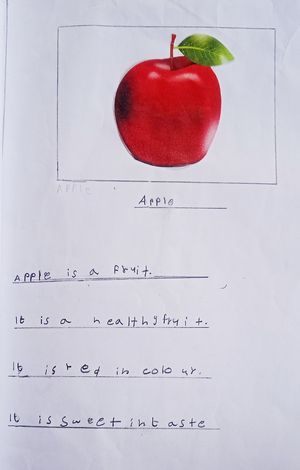 APPLE
Apple
APPle is a fruit.
It is a healthy fruit.
It is red in colour.
It is sweet in taste